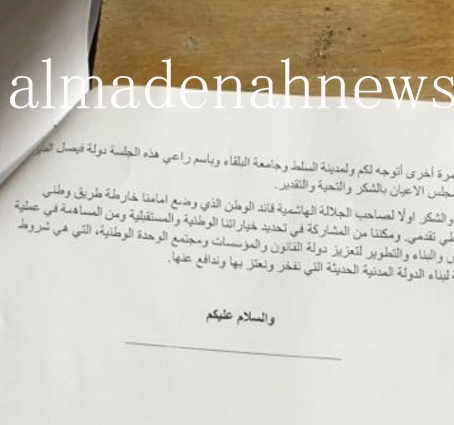 almadenahnews
مرة أخرى أتوجه لكم ولمدينة السلط وجامعة البلقاء وباسم راعي هذه الجلسة دولة فيصل
جلس الاعيان بالشكر والتحية والتقدير.
والشكر اولًا لصاحب الجلالة الهاشمية قائد الوطن الذي وضع امامنا خارطة طريق وطني
طي تقدمي. ومكننا من المشاركة في تحديد خياراتنا الوطنية والمستقبلية ومن المساهمة في عملية
والبناء والتطوير لتعزيز دولة القانون والمؤسسات ومجتمع الوحدة الوطنية، التي هي شروط
لبناء الدولة المدنية الحديثة التي نفخر ونعتز بها وندافع عنها.
والسلام عليكم